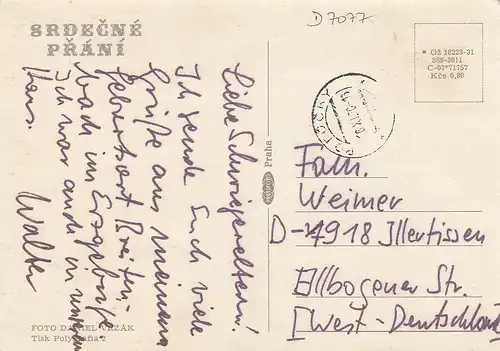 D7077
SRDEČNÉ
PŘÁNÍ
Liebe Schwiegereltern!
Ich sende Euch viele
Grüße aus meinem
Geburtsort Breiten-
bach im Erzgebirge
Ich war auch in unserem
Haus.
Walter
FOTO DANIEL VRZÁK
Tisk Polygrafia 2
Praha
POTŮČKY
Ož 18223-31
C-07*71757
Kčs 0,80
Fam.
Weimer
D-7918 Illertissen
Ellbogener Str.
[West-Deutschland